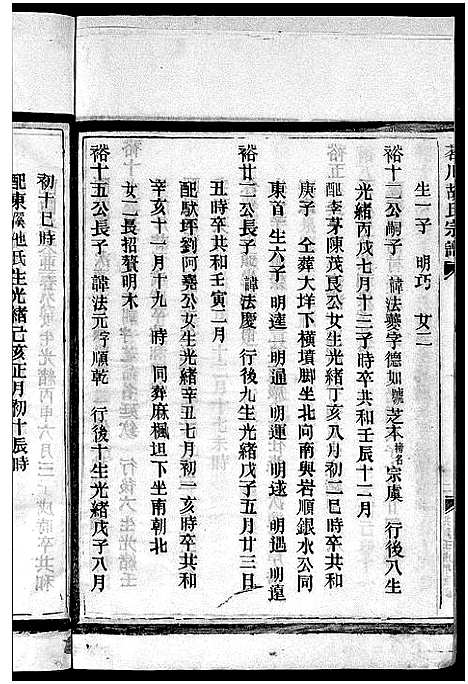 茗川胡氏宗譜
生一子 明巧 女二
裕十二公嗣子 諱法夔字德如號芝本榜名宗虞 行後八生
光緒丙戌七月十三子時卒共和壬辰十二月
配李茅陳茂良公女生光緒丁亥八月初二巳時卒共和
庚子 仝葬大垟下橫墳脚坐北向南與岩順銀水公同
東首 生六子 明達 明通 明運 明逑 明遇 明遠
裕廿二公長子 諱法慶 行後九生光緒戊子五月廿三日
丑時卒共和壬寅二月
配馱坪劉阿嘉公女生光緒辛丑七月初一亥時卒共和
辛亥十一月十九 時 同葬麻楓垣下坐南朝北
女二長招贅明木
裕十五公長子 諱法元字順乾 行後十生光緒戊子八月
初十巳時
配東溪池氏生光緒己亥正月初十辰時